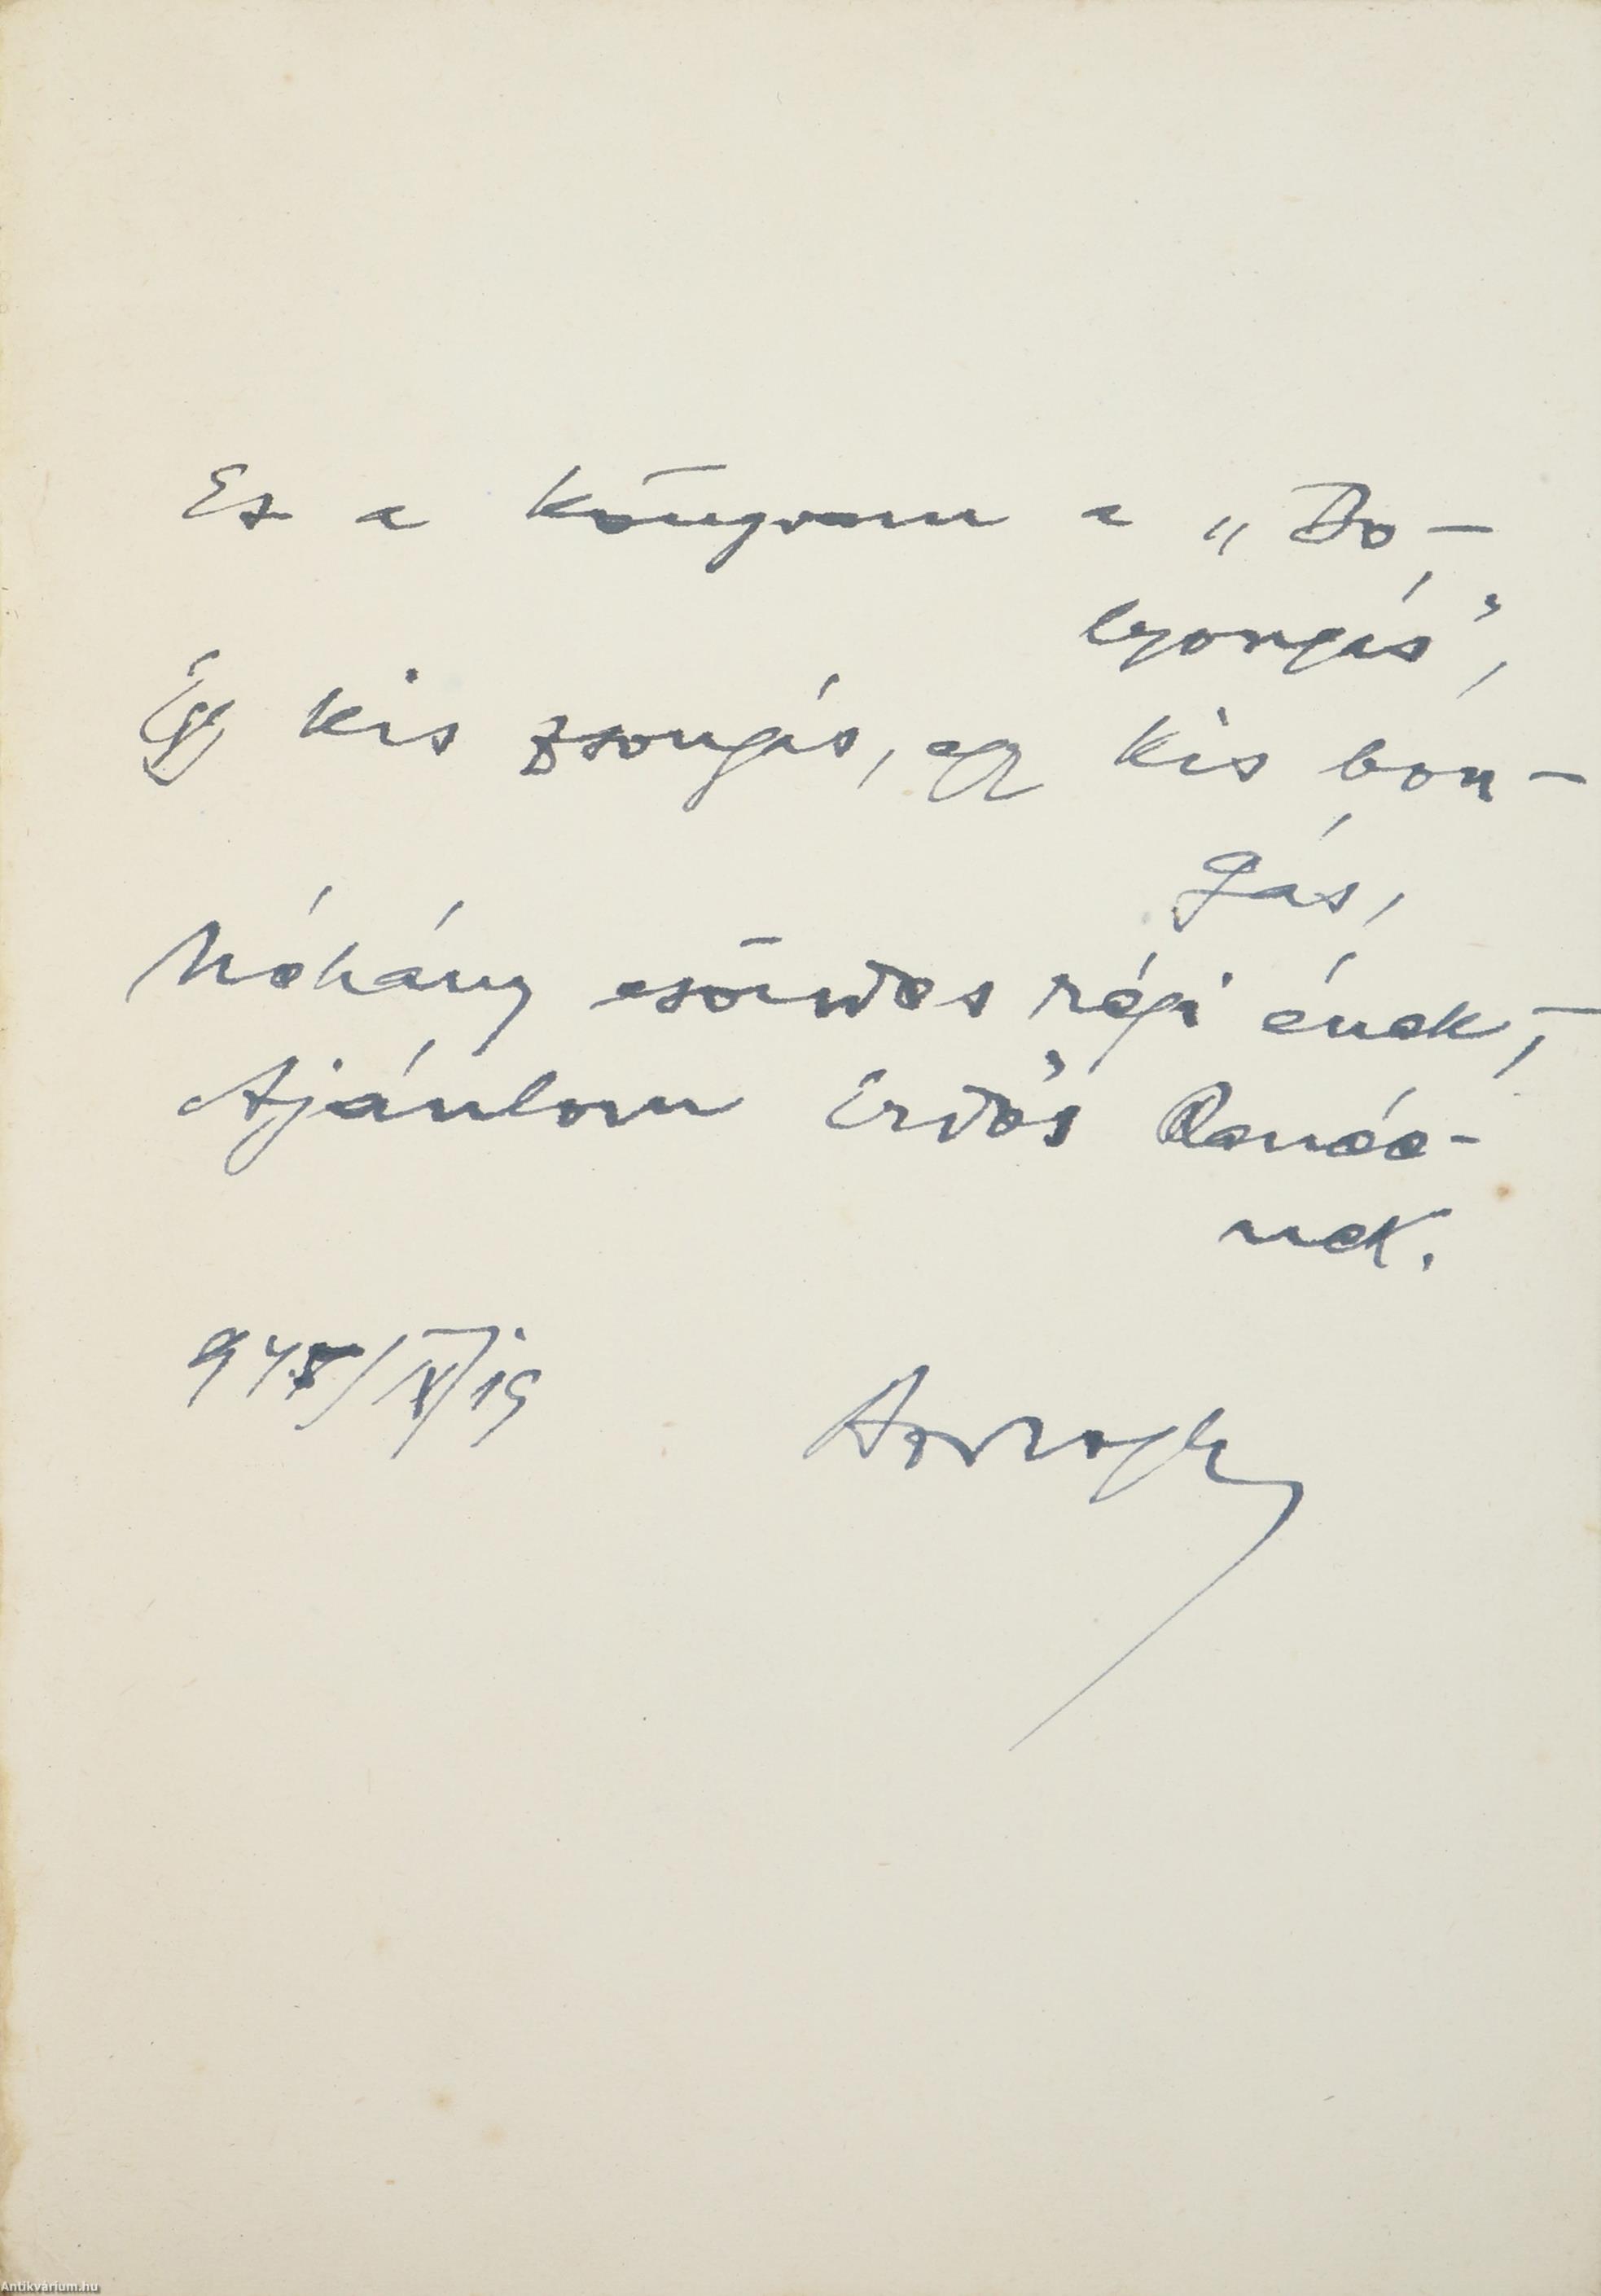 Ez a könyvem a „Bo-
lyongás",
Egy kis zsongás, egy kis bon-
gás,
Néhány csöndes régi ének,
Ajánlom Erdős Renée-
nek.
Antikvárium.hu